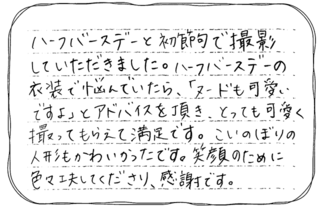 ハーフバースデーと初節句で撮影
していただきました。ハーフバースデーの
衣装で悩んでいたら、「ヌードも可愛い
ですよ」とアドバイスを頂き、とっても可愛く
撮ってもらえて満足です。こいのぼりの
人形もかわいかったです。笑顔のために
色々工夫してくださり、感謝です。